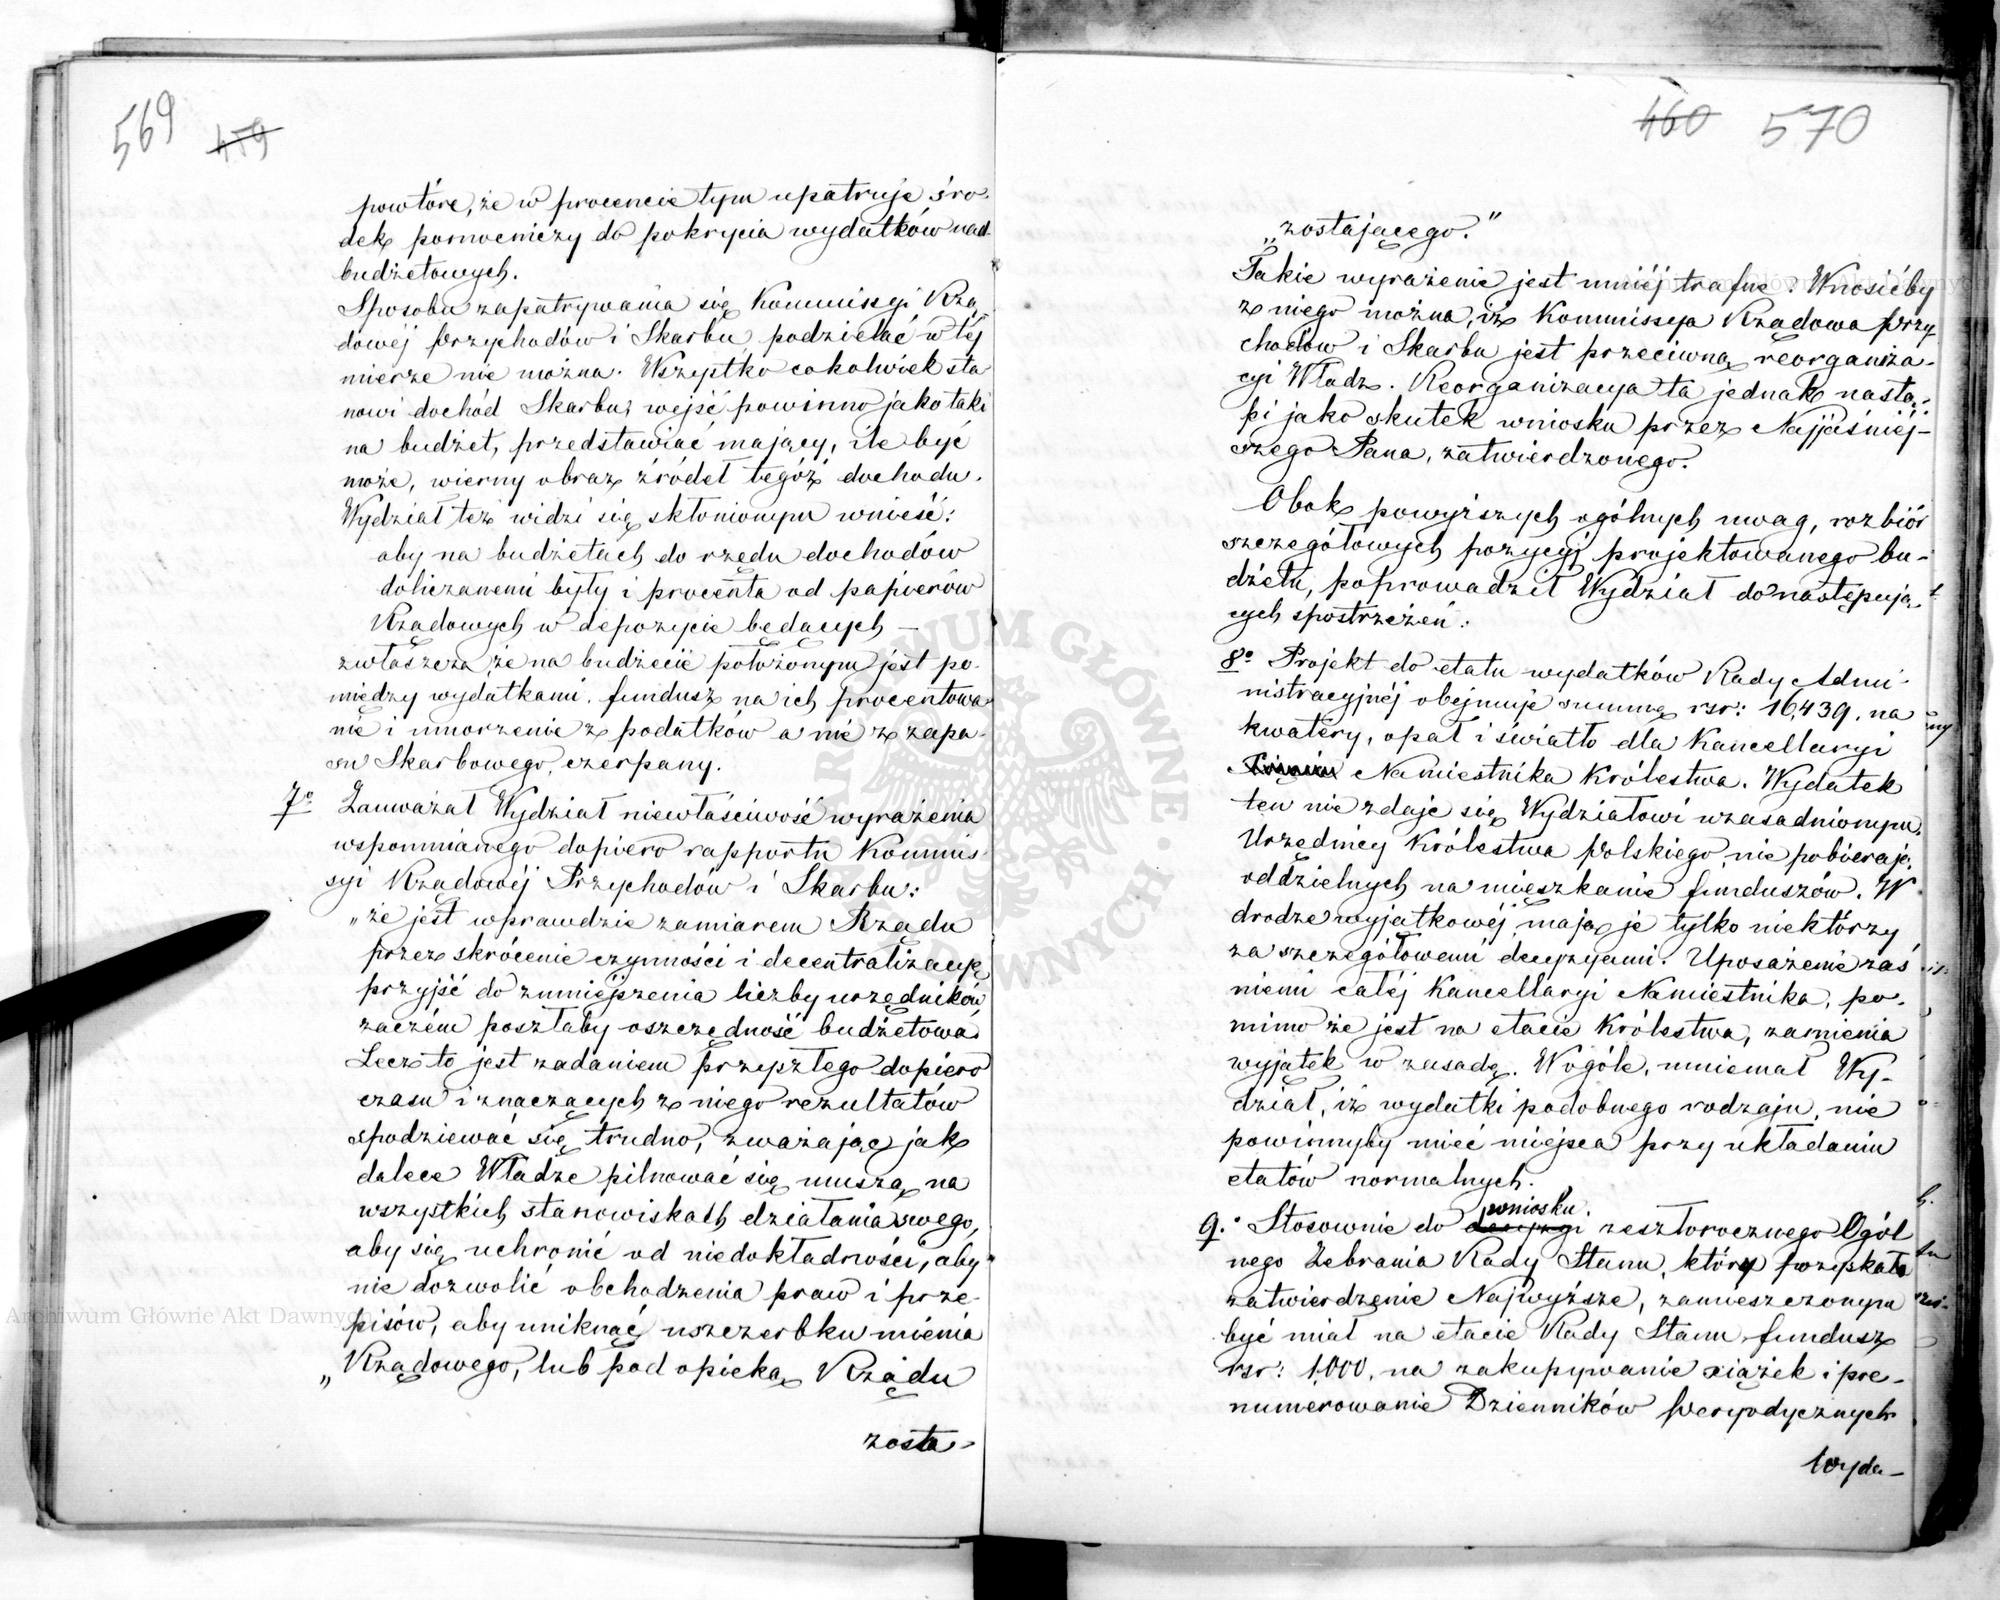 569 459
powtóre, że w procencie tym upatruje śro-
dek pomocniczy do pokrycia wydatków nad-
budżetowych.
Sposobu zapatrywania się Kommissyi Rzą
dowéj Przychodów i Skarbu podzielać w téj
mierze nie można. Wszystko cokolwiek sta
nowi dochód Skarbu, wejść powinno jako taki
na budżet, przedstawiać mający, ile być
może, wierny obraz źródeł tegóż dochodu.
Wydział też widzi się skłonionym wnieść:
aby na budżetach do rzędu dochodów
doliczanemi były i procenta od papierów
Rządowych w depozycie będących —
zwłaszcza, że na budżecie położonym jest po-
między wydatkami, fundusz na ich procentowa
nie i umorzenie z podatków a nie z zapa-
su Skarbowego, czerpany.
7o Zauważał Wydział niewłaściwość wyrażenia
wspomnianego dopiero rapportu Kommis-
syi Rządowéj Przychodów i Skarbu:
„że jest wprawdzie zamiarem Rządu
przez skrócenie czynności i decentralizacyę
przyjść do zmniejszenia liczby urzędników
zaczém poszłaby oszczędność budżetowa.
Lecz to jest zadaniem przyszłego dopiero
czasu i znaczących z niego rezultatów
spodziewać się trudno, zważając jak
dalece Władze pilnować się muszą na
wszystkich stanowiskach działania swego,
aby się uchronić od niedokładności, aby
nie dozwolić obchodzenia praw i prze-
pisów, aby uniknąć uszczerbku mienia
„Rządowego, lub pod opieką Rządu
zosta-
460 570
„zostającego."
Takie wyrażenie jest mniéj trafne. Wnosićby
z niego można, iż Kommissya Rządowa Przy
chodów i Skarbu jest przeciwną reorganiza-
cyi Władz. Reorganizacya ta jednak nastą-
pi jako skutek wniosku przez Najjaśniéj-
szego Pana, zatwierdzonego.
Obok powyższych ogólnych uwag, rozbiór
szczegółowych pozycyj projektowanego bu-
dżetu, poprowadził Wydział do następują
cych spostrzeżeń:
8o Projekt do etatu wydatków Rady Admi-
nistracyjnéj obejmuje summę rsr: 16,439. na
kwatery, opał i światło dla Kancellaryi
Namiestnika Królestwa. Wydatek
ten nie zdaje się Wydziałowi uzasadnionym.
Urzędnicy Królestwa Polskiego nie pobierają
oddzielnych na mieszkanie funduszów. W
drodze wyjątkowéj mają je tylko niektórzy
za szczegółowemi decyzyami. Uposażenie zaś
niemi całéj Kancellaryi Namiestnika, po-
mimo że jest na etacie Królestwa, zamienia
wyjątek w zasadę. W ogóle, mniemał Wy-
dział, iż wydatki podobnego rodzaju, nie
powinnyby mieć miejsca przy układaniu
etatów normalnych.
wniosku
9. Stosownie do decyzyi zeszłorocznego Ogól
nego Zebrania Rady Stanu, który pozyskał
zatwierdzenie Najwyższe, zamieszczonym
być miał na etacie Rady Stanu fundusz
rsr: 1000. na zakupywanie xiążek i pre-
numerowanie Dzienników peryodycznych
wyda-
ARCHIWUM GŁÓWNE AKT DAWNYCH
Archiwum Główne Akt Dawnych
Archiwum Główne Akt Dawnych